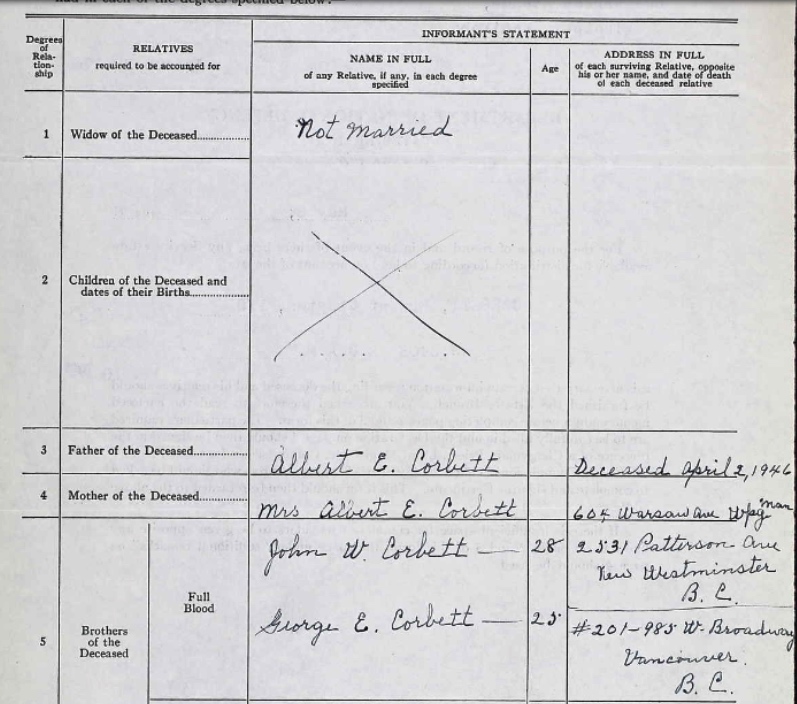 had in each of the degrees specified below:—
Degrees
of
Rela-
tion-
ship
RELATIVES
required to be accounted for
INFORMANT'S STATEMENT
NAME IN FULL
of any Relative, if any, in each degree
specified
Age
ADDRESS IN FULL
of each surviving Relative, opposite
his or her name, and date of death
of each deceased relative
1 Widow of the Deceased............... Not Married
2 Children of the Deceased and
dates of their Births...............
3 Father of the Deceased............... Albert E. Corbett Deceased April 2, 1946
4 Mother of the Deceased............... Mrs Albert E. Corbett 604 Warsaw Ave Wpg Man
5 Brothers
of the
Deceased
Full
Blood
John W. Corbett — 28 2531 Patterson Ave
New Westminster
B.C.
George E. Corbett — 25 #201-985 W. Broadway
Vancouver.
B.C.